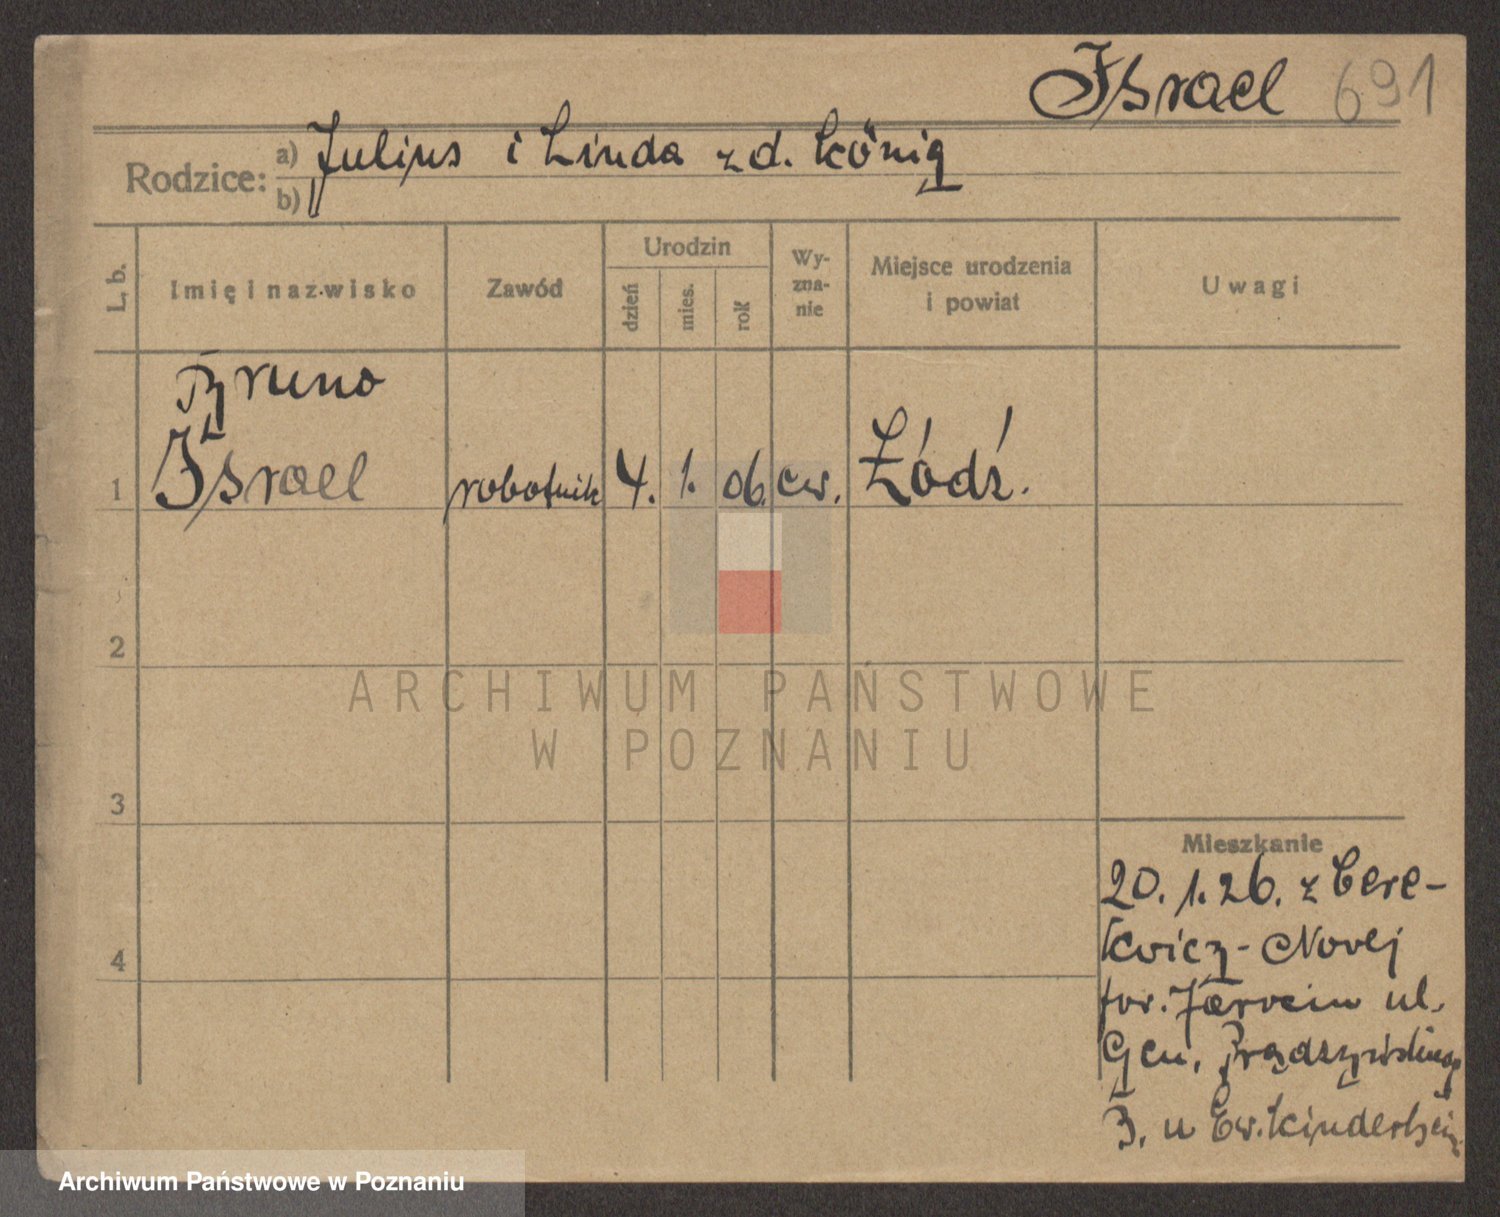 Israel 691
Rodzice: a) Julius i Linda z d. König
b)
L. b.
Imię i nazwisko
Zawód
Urodzin
dzień
mies.
rok
Wy-
zna-
nie
Miejsce urodzenia
i powiat
Uwagi
Bruno
1 Israel robotnik 4. 1. 06. ew. Łódź.
2
ARCHIWUM PAŃSTWOWE
W POZNANIU
3
Mieszkanie
20. 1. 26. z Cere-
kwicz-Nowej
4
pow. Jarocin ul.
Gen. Prądzyńskiego
3. u Ew. Kinderheim
Archiwum Państwowe w Poznaniu